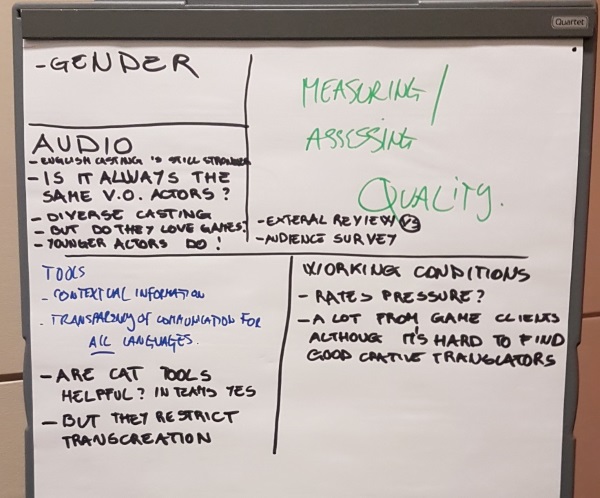 Quartet
- GENDER
MEASURING /
ASSESSING
QUALITY.
- EXTERAL REVIEW VS
- AUDIENCE SURVEY
AUDIO
- ENGLISH CASTING IS STILL STRONGER
- IS IT ALWAYS THE
SAME V.O. ACTORS ?
- DIVERSE CASTING
- BUT DO THEY LOVE GAMES?
- YOUNGER ACTORS DO !
TOOLS
- CONTEXTUAL INFORMATION
- TRANSPARENCY OF COMMUNICATION FOR
ALL LANGUAGES.
- ARE CAT TOOLS
HELPFUL? IN TEAMS YES
- BUT THEY RESTRICT
TRANSCREATION
WORKING CONDITIONS
- RATES PRESSURE?
- A LOT FROM GAME CLIENTS
ALTHOUGH IT'S HARD TO FIND
GOOD CRATIVE TRANSLATORS